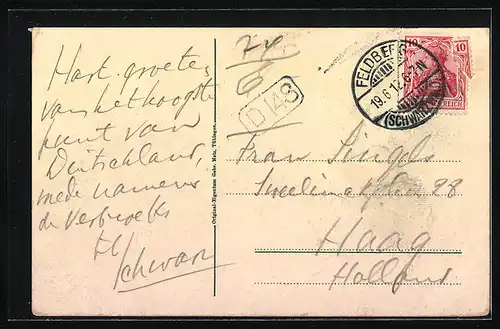 Hart. groeten
van het hoogste
punt van
Deutschland,
mede namens
de
Schwarz
Original-Eigentum Gebr. Metz, Tübingen.
D 148
FELDBERG
19.6.12. 6-7N
(SCHWARZWALD)
10
REICH
Frau Singels
28
Haag
Holland